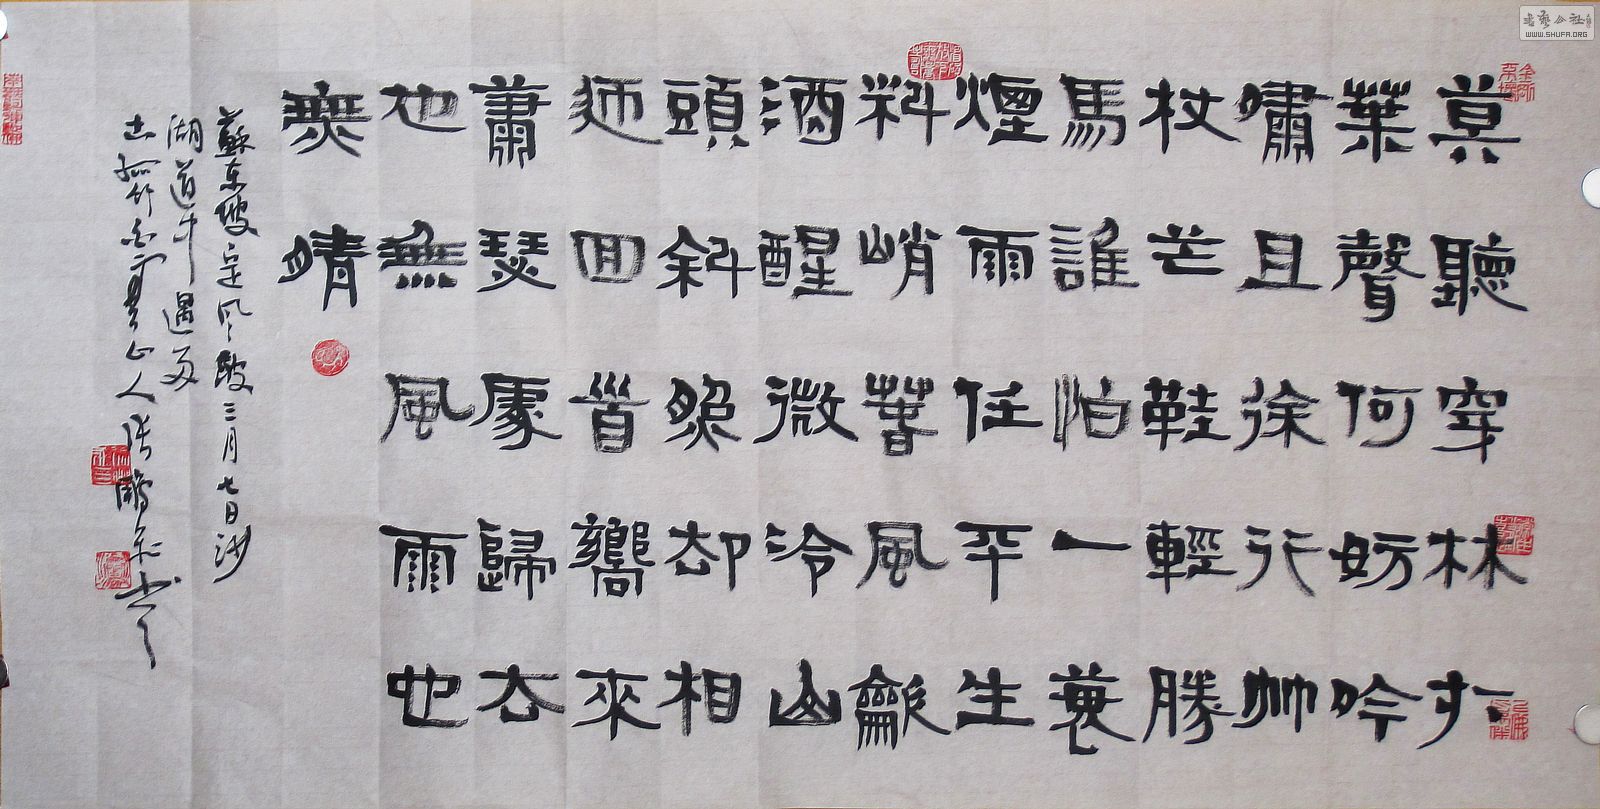 莫聽穿林打
葉聲何妨吟
嘯且徐行竹
杖芒鞋輕勝
馬誰怕一蓑
煙雨任平生
料峭春風龡
酒醒微冷山
頭斜照却相
迎回首嚮來
蕭瑟處歸去
也無風雨也
無晴
蘇東坡定風波三月七日沙
湖道中遇雨
古孤竹人張鵬書
WWW.SHUFA.ORG